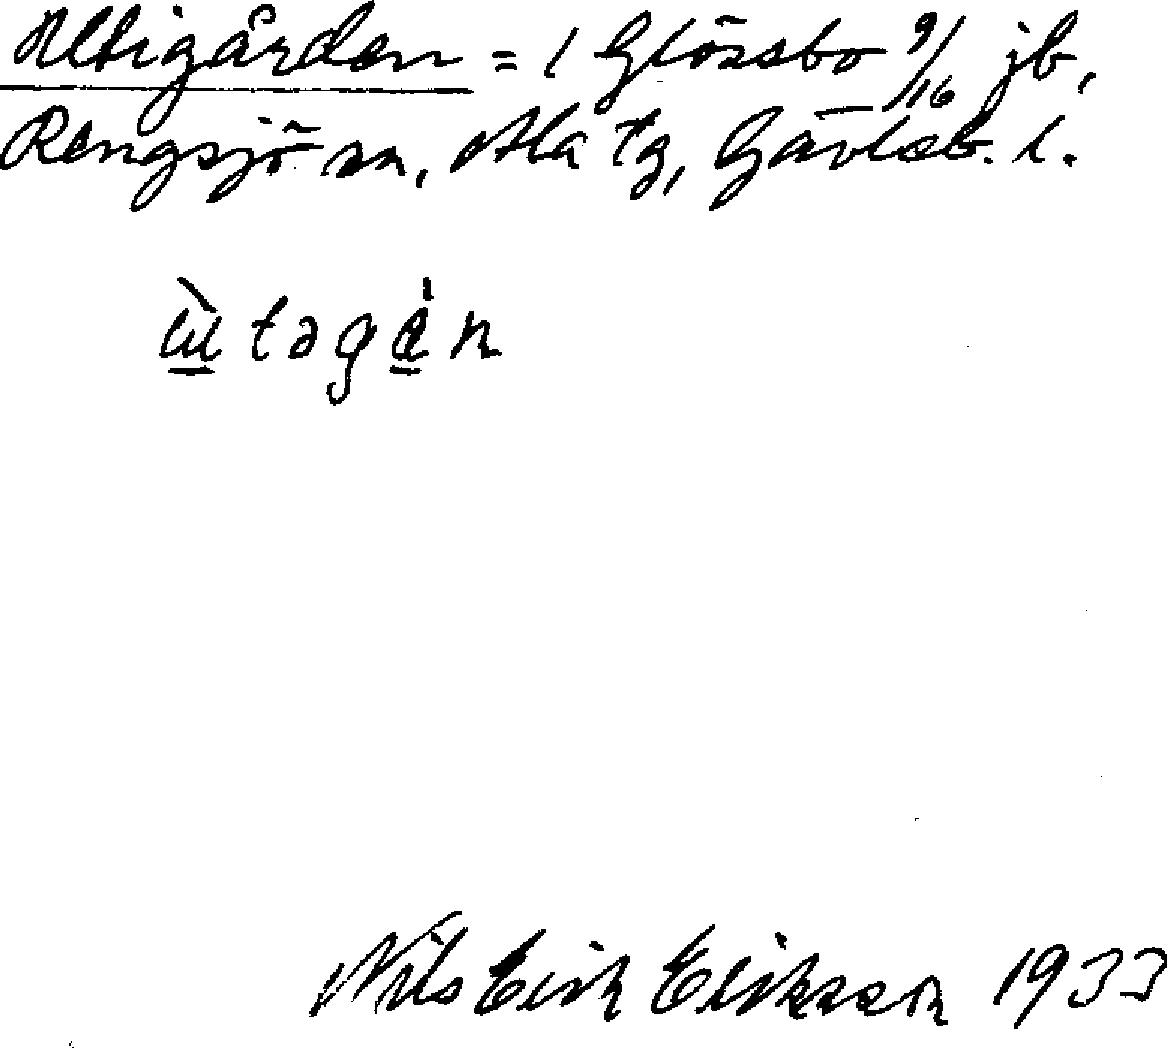 Uttigården = 1 Glössbo 9/16 jb,
Rengsjö sn, Ala tg, Gävleb. l.
ù̲təgὰ̲n
Nils Erik Eriksson 1933